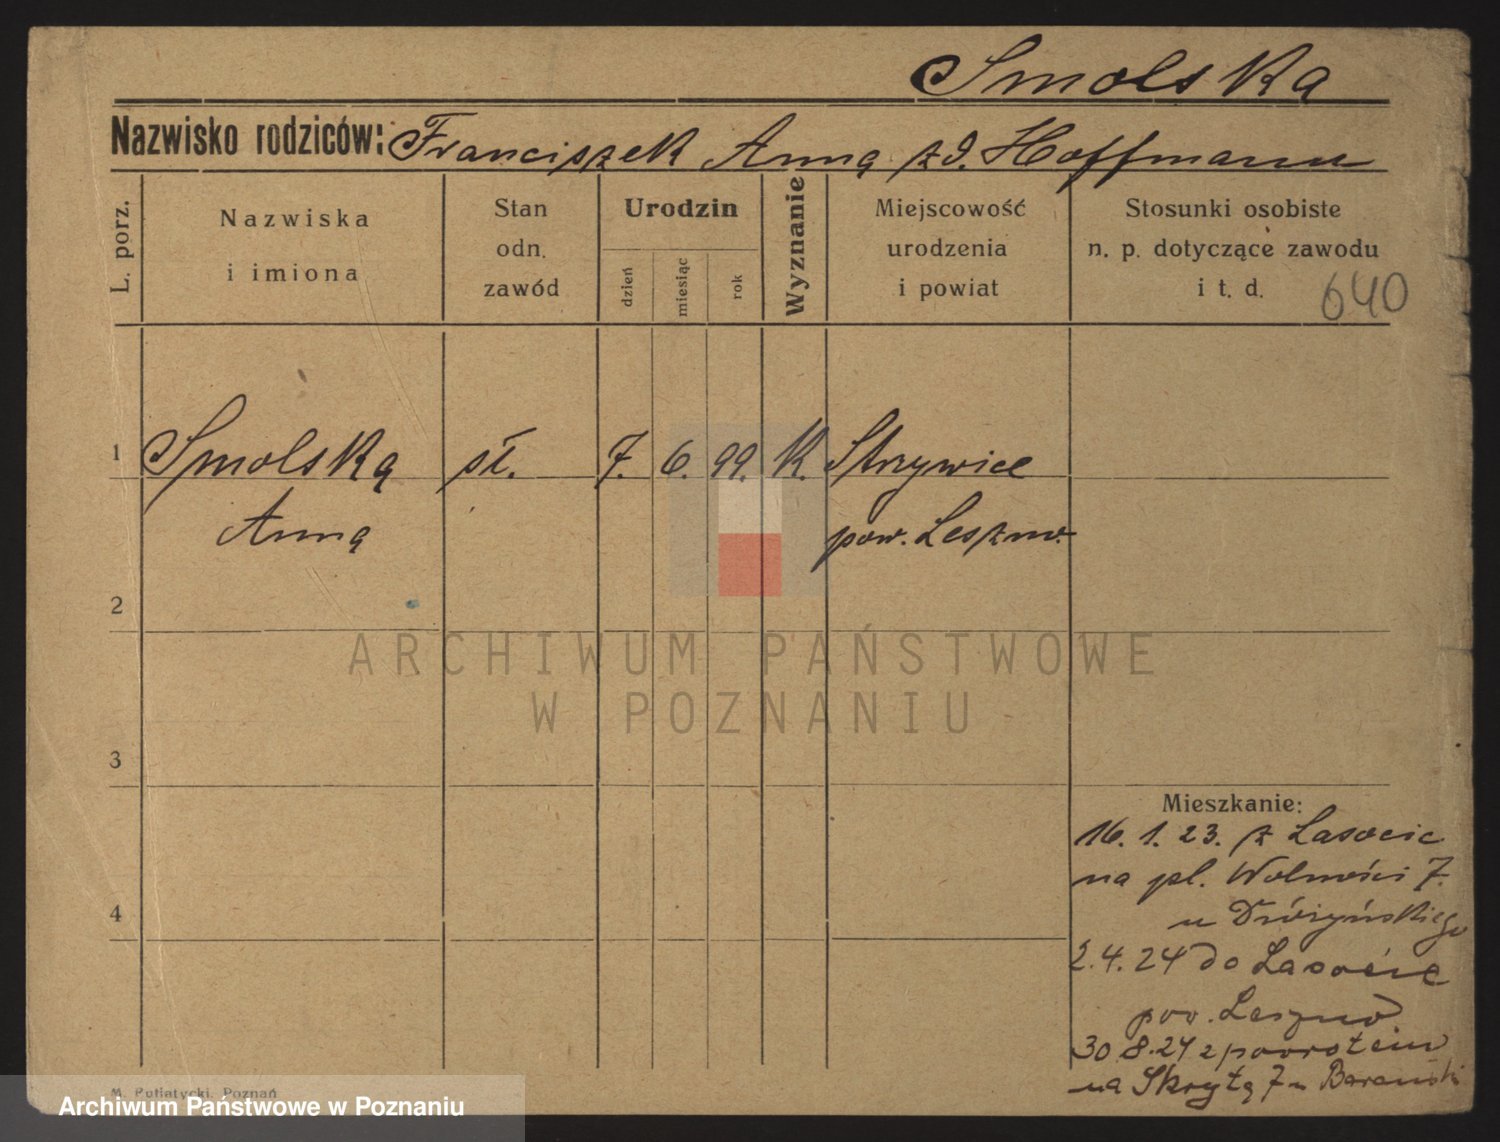 Smolska
Nazwisko rodziców: Franciszek Anna zd. Hoffmann
L. porz.
Nazwiska
i imiona
Stan
odn.
zawód
Urodzin
dzień
miesiąc
rok
Wyznanie
Miejscowość
urodzenia
i powiat
Stosunki osobiste
n. p. dotyczące zawodu
i t. d.
640
1 Smolska sł. 7. 6. 99. K. Strzywice
Anna pow. Leszno.
2
3
4
Mieszkanie:
16. 1. 23. z Lasocic
na pl. Wolności 7.
u Dróżyńskiego
2.4.24 do Lasocic
pow. Leszno
30.8.24 z powrotem
na Skrytą 7 u Barański
M. Putiatycki, Poznań
ARCHIWUM PAŃSTWOWE
W POZNANIU
Archiwum Państwowe w Poznaniu